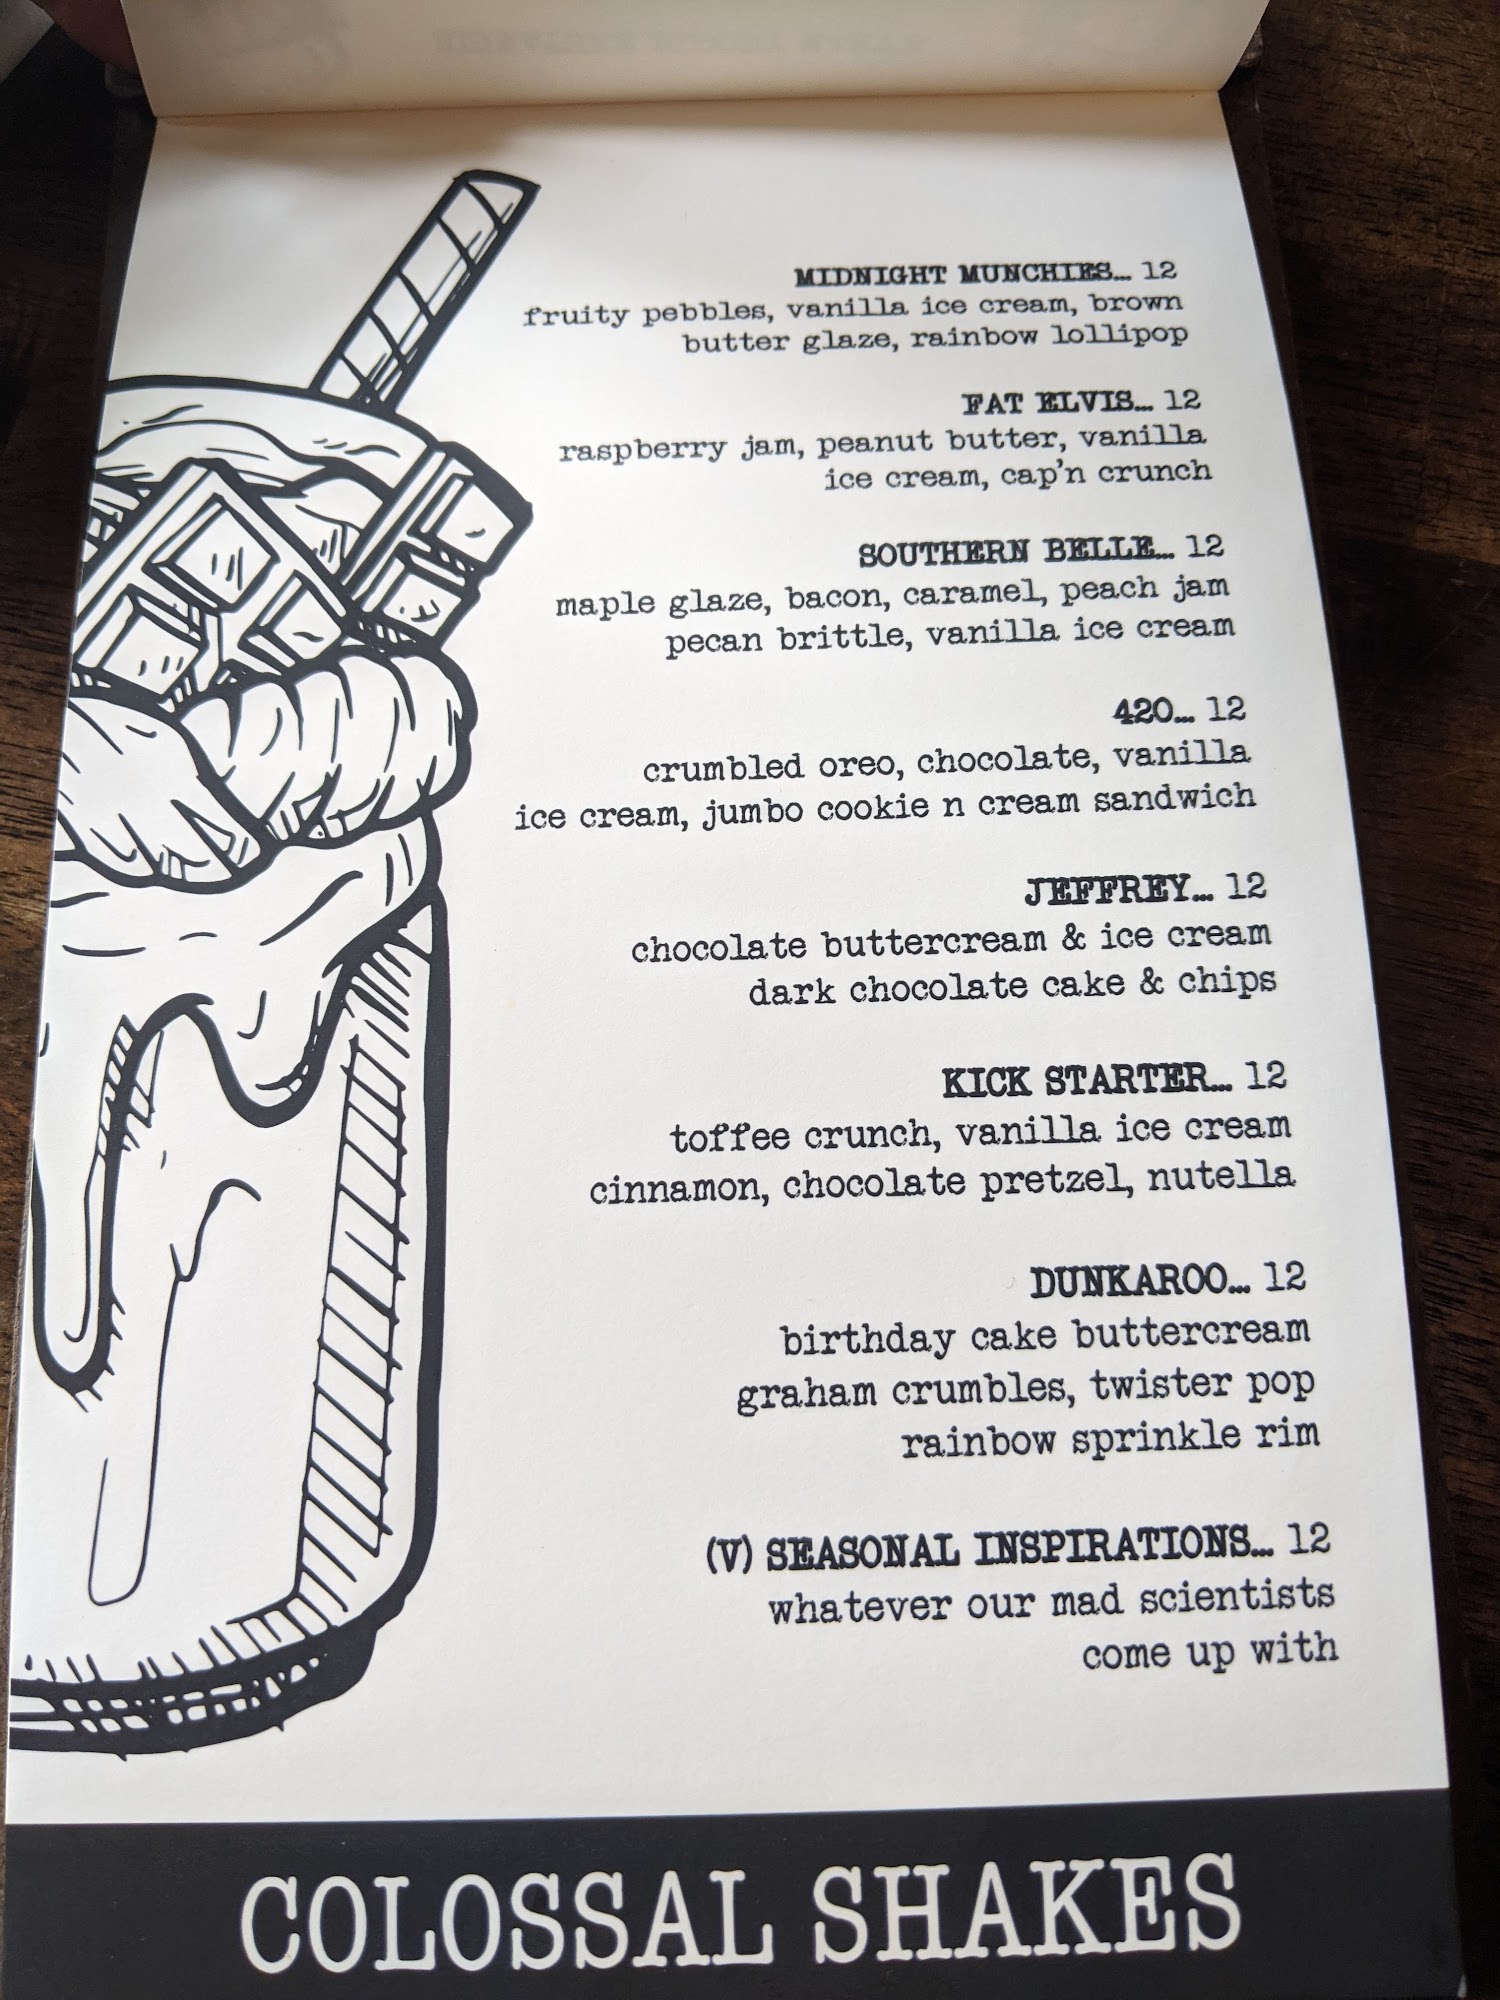 MIDNIGHT MUNCHIES... 12
fruity pebbles, vanilla ice cream, brown
butter glaze, rainbow lollipop
FAT ELVIS... 12
raspberry jam, peanut butter, vanilla
ice cream, cap'n crunch
SOUTHERN BELLE... 12
maple glaze, bacon, caramel, peach jam
pecan brittle, vanilla ice cream
420... 12
crumbled oreo, chocolate, vanilla
ice cream, jumbo cookie n cream sandwich
JEFFREY... 12
chocolate buttercream & ice cream
dark chocolate cake & chips
KICK STARTER... 12
toffee crunch, vanilla ice cream
cinnamon, chocolate pretzel, nutella
DUNKAROO... 12
birthday cake buttercream
graham crumbles, twister pop
rainbow sprinkle rim
(V) SEASONAL INSPIRATIONS... 12
whatever our mad scientists
come up with
COLOSSAL SHAKES